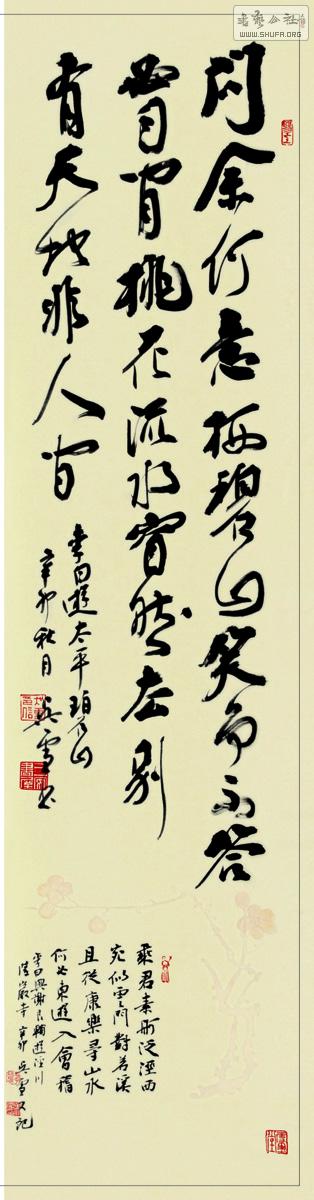 書藝公社
WWW.SHUFA.ORG
問余何意栖碧山笑而不答
心自閒桃花流水窅然去別
有天地非人間
李白遊太平碧山
辛卯秋月 吳雪書
乘君素舸泛涇西
宛似雲門對若溪
且從康樂尋山水
何必東遊入會稽
李白與謝良輔遊涇川
陵巖寺 辛卯 吳雪又記